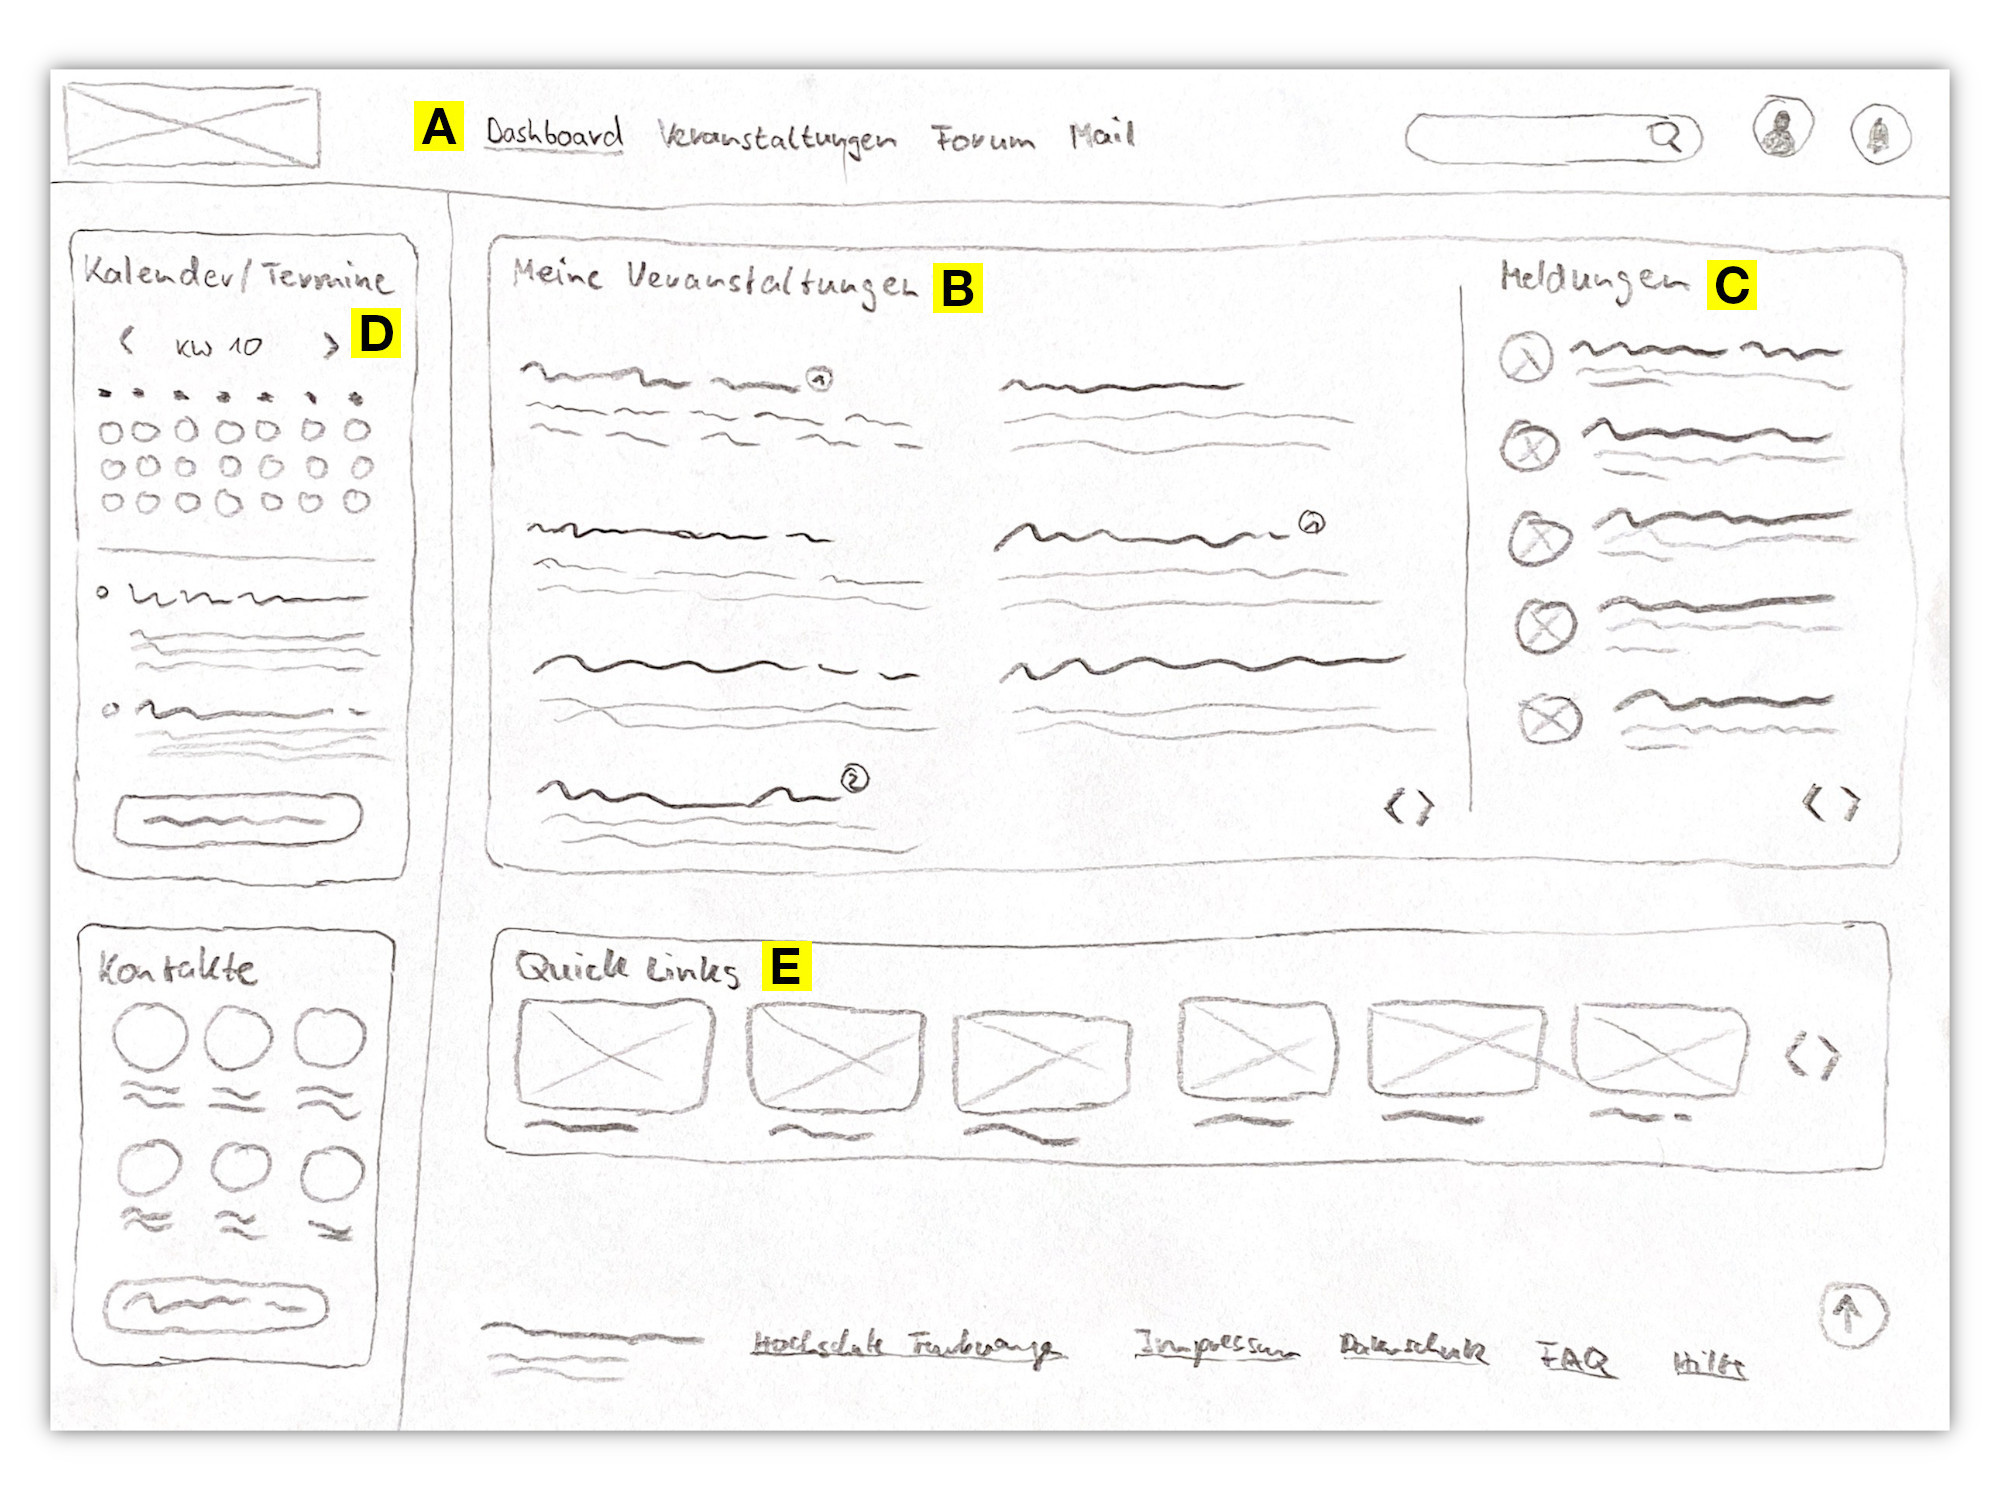 A Dashboard Veranstaltungen Forum Mail
Kalender/Termine
D
< KW 10 >
Kontakte
Meine Veranstaltungen B
1
1
2
< >
Meldungen C
< >
Quick Links E
< >
Hochschule Furtwangen Impressum Datenschutz FAQ Hilfe